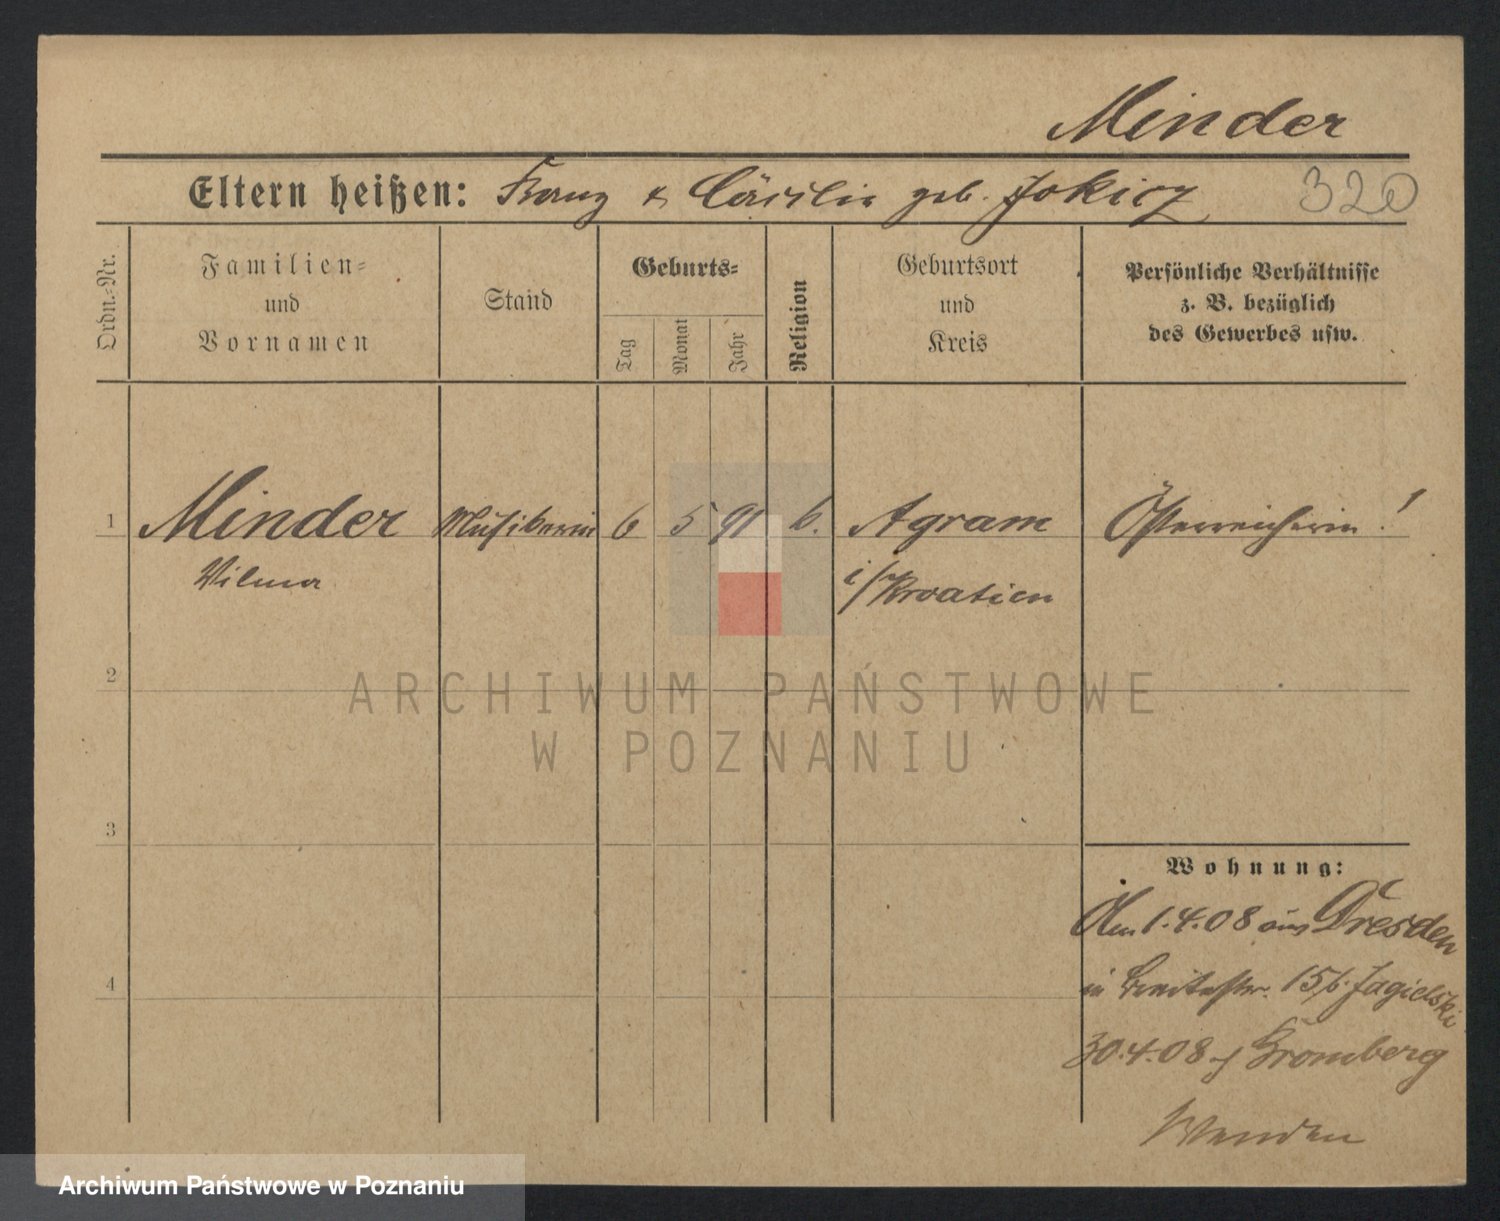 Minder
Eltern heißen: Franz & Cäcilie geb. Jokicz 320
Ordn.-Nr.
Familien-
und
Vornamen
Stand
Geburts-
Tag
Monat
Jahr
Religion
Geburtsort
und
Kreis
Persönliche Verhältnisse
z. B. bezüglich
des Gewerbes usw.
1 Minder Musikerin 6 5 91 k. Agram Österreicherin!
Vilma i/Kroatien
2
ARCHIWUM PAŃSTWOWE
W POZNANIU
3
Wohnung:
Am 1.4.08 aus Dresden
in Breitestr. 15 b. Jagielski
4
30.4.08 Bromberg
Wenden
Archiwum Państwowe w Poznaniu